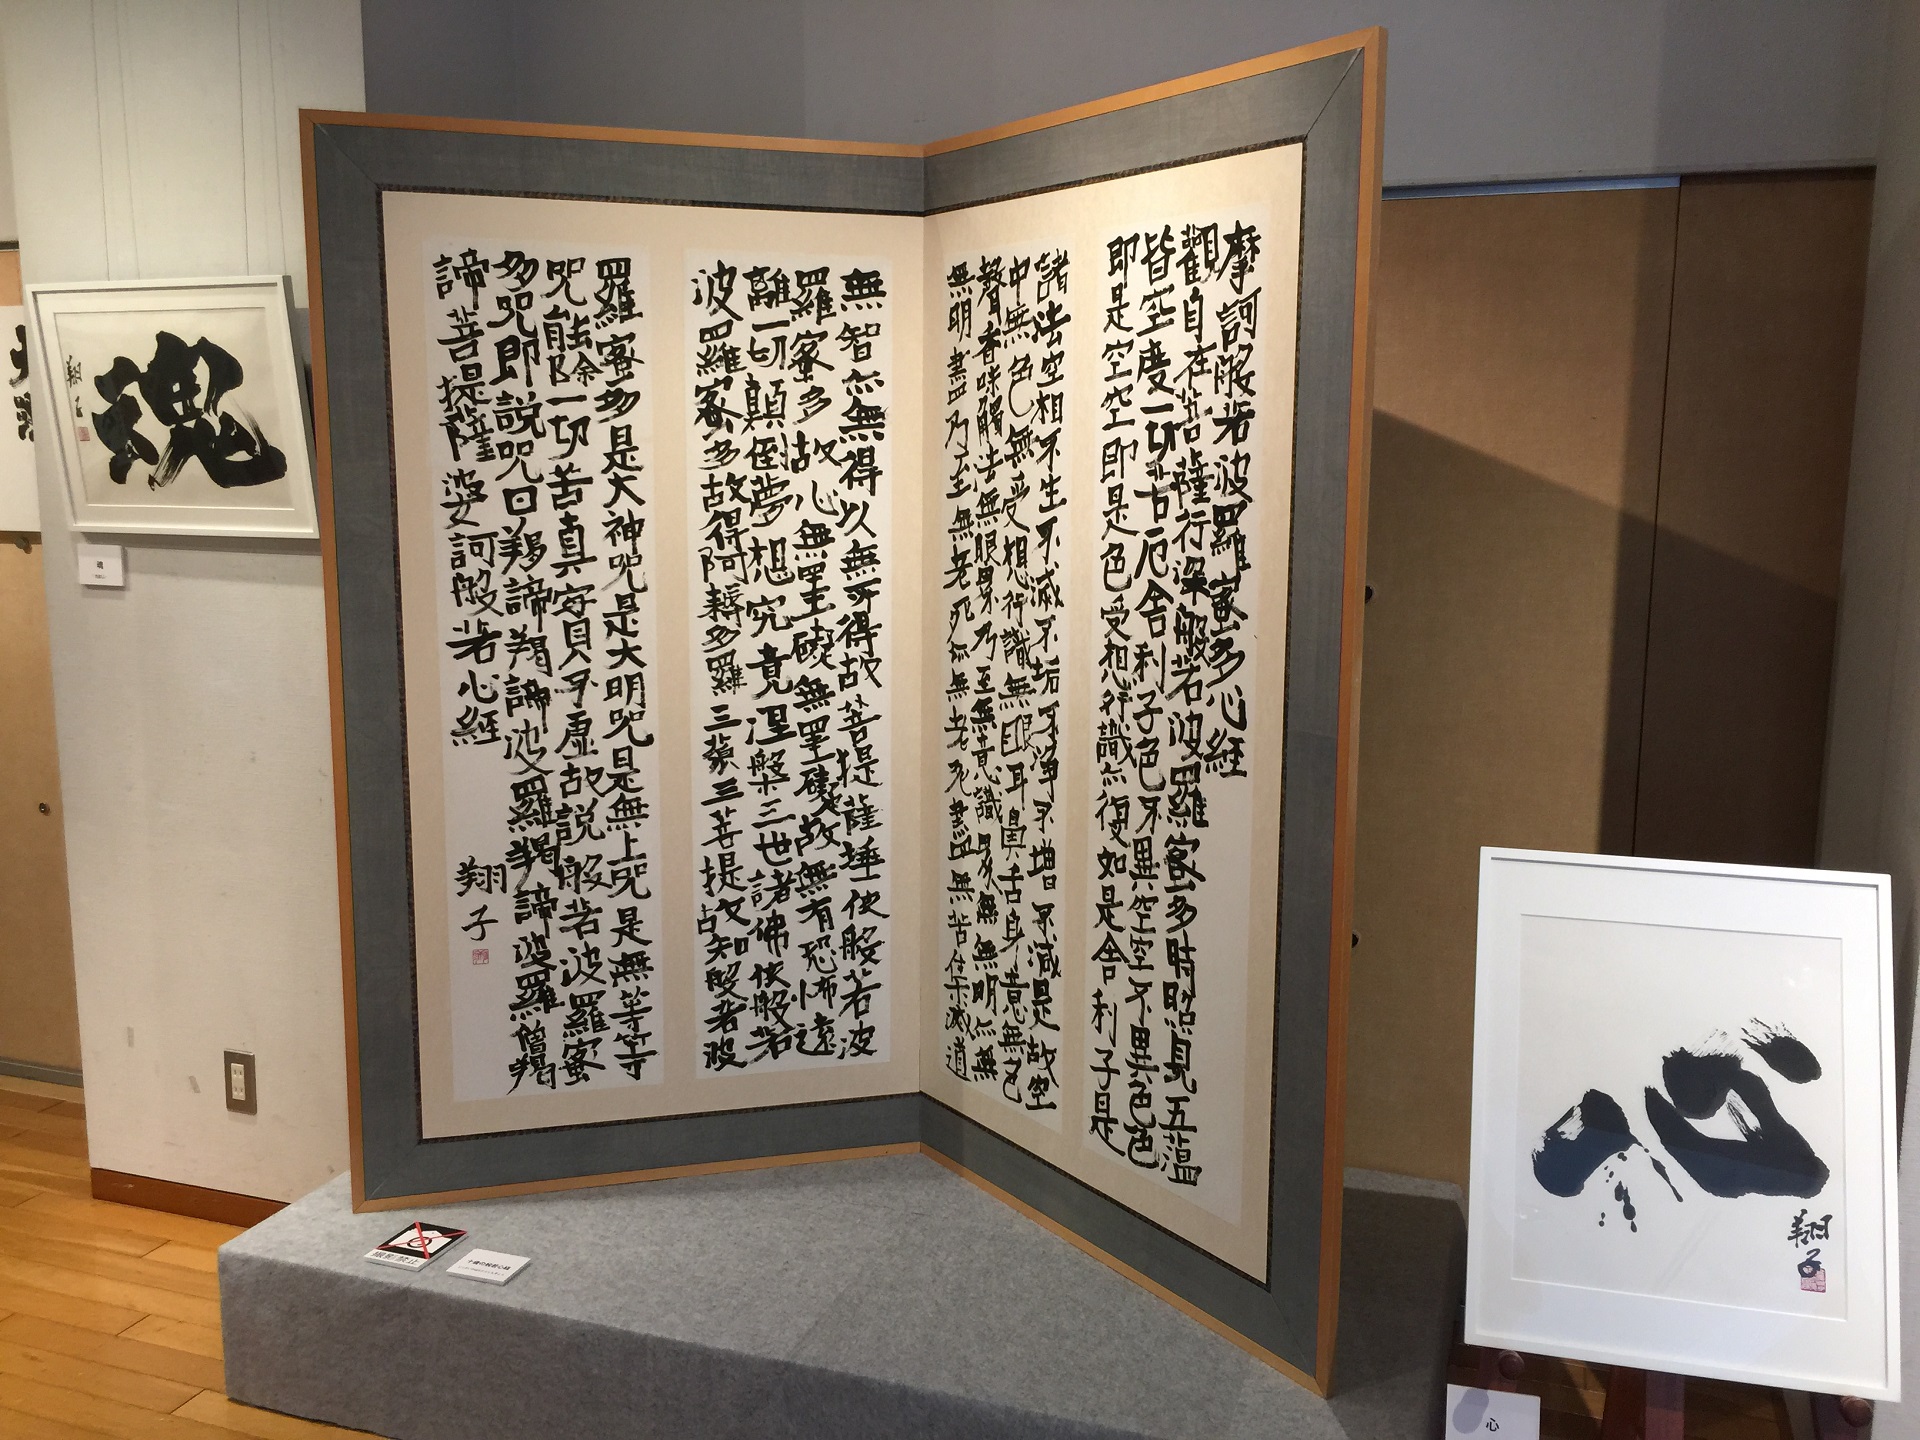 摩訶般若波羅蜜多心經
觀自在菩薩行深般若波羅蜜多時照見五蘊
皆空度一切苦厄舎利子色不異空空不異色色
即是空空即是色受想行識亦復如是舎利子是
諸法空相不生不滅不垢不淨不増不減是故空
中無色無受想行識無眼耳鼻舌身意無色
聲香味觸法無眼界乃至無意識界無無明亦無
無明盡乃至無老死亦無老死盡無苦集滅道
無智亦無得以無所得故菩提薩埵依般若波
羅蜜多故心無罣礙無罣礙故無有恐怖遠
離一切顛倒夢想究竟涅槃三世諸佛依般若
波羅蜜多故得阿耨多羅三藐三菩提故知般若波
羅蜜多是大神咒是大明咒是無上咒是無等等
咒能除一切苦真實不虚故説般若波羅蜜
多咒即説咒曰羯諦羯諦波羅羯諦波羅僧羯
諦菩提薩婆訶般若心經
翔子
魂
翔子
魂
心
翔子
心
撮影禁止
十歳の般若心経